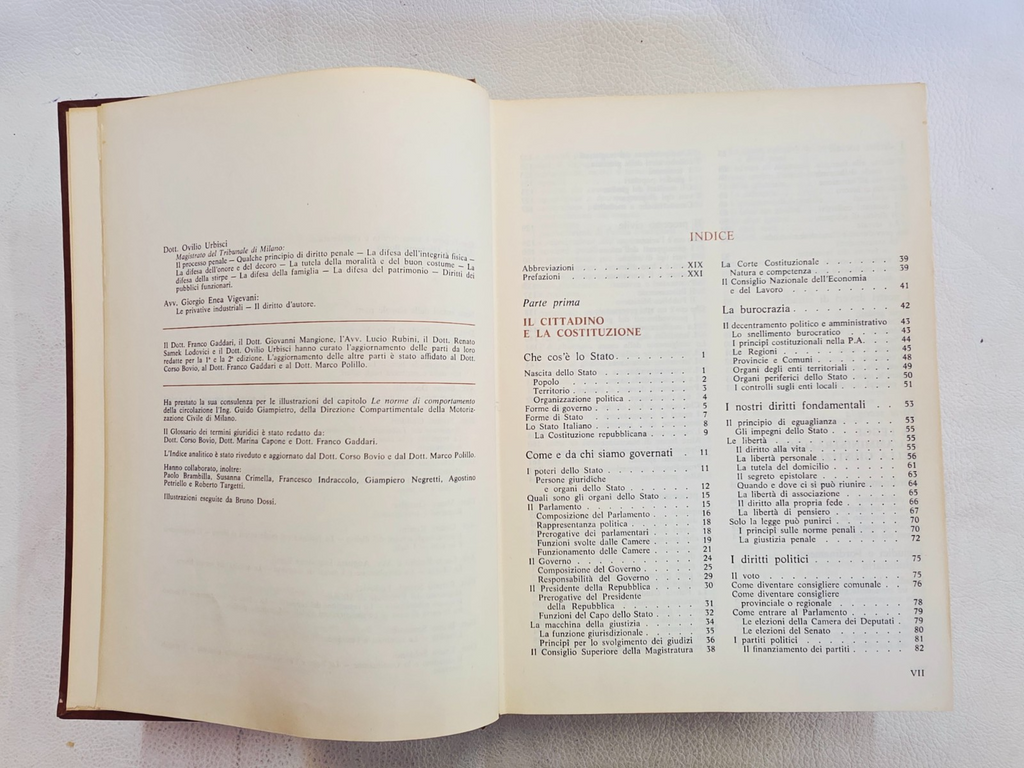 Dott. Ovilio Urbisci
Magistrato del Tribunale di Milano:
Il processo penale — Qualche principio di diritto penale — La difesa dell'integrità fisica —
La difesa dell'onore e del decoro — La tutela della moralità e del buon costume — La
difesa della stirpe — La difesa della famiglia — La difesa del patrimonio — Diritti dei
pubblici funzionari.
Avv. Giorgio Enea Vigevani:
Le privative industriali — Il diritto d'autore.
Il Dott. Franco Gaddari, il Dott. Giovanni Mangione, l'Avv. Lucio Rubini, il Dott. Renato
Samek Lodovici e il Dott. Ovilio Urbisci hanno curato l'aggiornamento delle parti da loro
redatte per la 1ª e la 2ª edizione. L'aggiornamento delle altre parti è stato affidato al Dott.
Corso Bovio, al Dott. Franco Gaddari e al Dott. Marco Polillo.
Ha prestato la sua consulenza per le illustrazioni del capitolo Le norme di comportamento
della circolazione l'Ing. Guido Giampietro, della Direzione Compartimentale della Motoriz-
zazione Civile di Milano.
Il Glossario dei termini giuridici è stato redatto da:
Dott. Corso Bovio, Dott. Marina Capone e Dott. Franco Gaddari.
L'Indice analitico è stato riveduto e aggiornato dal Dott. Corso Bovio e dal Dott. Marco Polillo.
Hanno collaborato, inoltre:
Paolo Brambilla, Susanna Crimella, Francesco Indraccolo, Giampiero Negretti, Agostino
Petriello e Roberto Targetti.
Illustrazioni eseguite da Bruno Dossi.
INDICE
Abbreviazioni . . . . . . . . . . XIX
Prefazioni . . . . . . . . . . XXI
Parte prima
IL CITTADINO
E LA COSTITUZIONE
Che cos'è lo Stato . . . . . . . 1
Nascita dello Stato . . . . . . . 1
Popolo . . . . . . . 2
Territorio . . . . . . . 3
Organizzazione politica . . . . . . . 4
Forme di governo . . . . . . . 5
Forme di Stato . . . . . . . 7
Lo Stato Italiano . . . . . . . 8
La Costituzione repubblicana . . . . 9
Come e da chi siamo governati 11
I poteri dello Stato . . . . . . . 11
Persone giuridiche
e organi dello Stato . . . . . . 12
Quali sono gli organi dello Stato . . . 15
Il Parlamento . . . . . . . 15
Composizione del Parlamento . . . . 16
Rappresentanza politica . . . . . 18
Prerogative dei parlamentari . . . . 18
Funzioni svolte dalle Camere . . . . 19
Funzionamento delle Camere . . . . 21
Il Governo . . . . . . . 24
Composizione del Governo . . . . . 25
Responsabilità del Governo . . . . 29
Il Presidente della Repubblica . . . . 30
Prerogative del Presidente
della Repubblica . . . . . . . 31
Funzioni del Capo dello Stato . . . . 32
La macchina della giustizia . . . . . 34
La funzione giurisdizionale . . . . . 35
Principi per lo svolgimento dei giudizi 36
Il Consiglio Superiore della Magistratura 38
La Corte Costituzionale . . . . . . 39
Natura e competenza . . . . . . 39
Il Consiglio Nazionale dell'Economia
e del Lavoro . . . . . . . 41
La burocrazia . . . . . . . 42
Il decentramento politico e amministrativo 43
Lo snellimento burocratico . . . . 43
I principi costituzionali nella P.A. . . . 44
Le Regioni . . . . . . . 45
Provincie e Comuni . . . . . . 48
Organi degli enti territoriali . . . . 49
Organi periferici dello Stato . . . . 50
I controlli sugli enti locali . . . . . 51
I nostri diritti fondamentali 53
Il principio di eguaglianza . . . . . 53
Gli impegni dello Stato . . . . . 55
Le libertà . . . . . . . 55
Il diritto alla vita . . . . . . 55
La libertà personale . . . . . . 56
La tutela del domicilio . . . . . 61
Il segreto epistolare . . . . . . 63
Quando e dove ci si può riunire . . . 64
La libertà di associazione . . . . . 65
Il diritto alla propria fede . . . . 66
La libertà di pensiero . . . . . . 67
Solo la legge può punirci . . . . . 70
I principi sulle norme penali . . . . 70
La giustizia penale . . . . . . 72
I diritti politici . . . . . . . 75
Il voto . . . . . . . 75
Come diventare consigliere comunale . 76
Come diventare consigliere
provinciale o regionale . . . . . 78
Come entrare al Parlamento . . . . 79
Le elezioni della Camera dei Deputati . 79
Le elezioni del Senato . . . . . 80
I partiti politici . . . . . . . 81
Il finanziamento dei partiti . . . . 82
VII